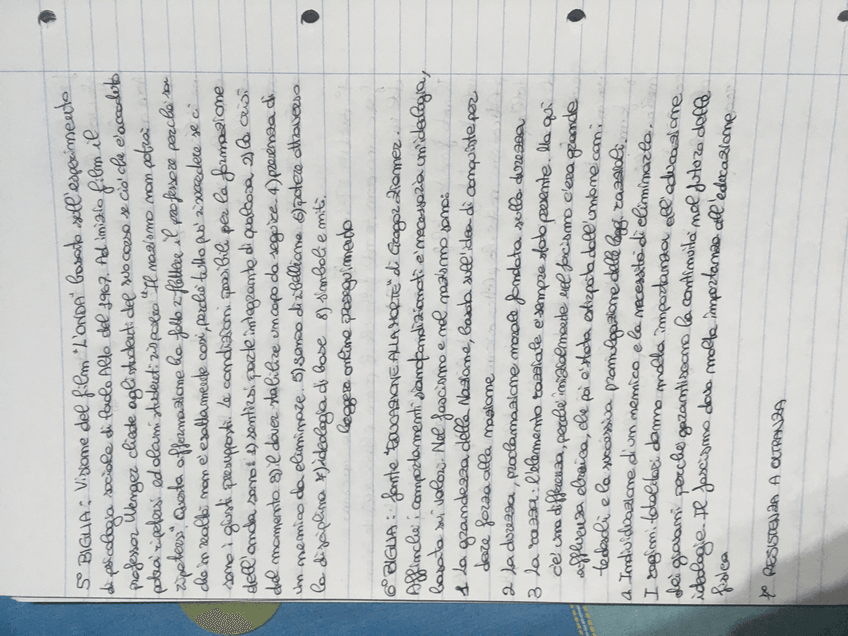 5° BIGLIA: Visione del film "L'ONDA" basato sull'esperimento
di psicologia sociale di Paolo Alto del 1967. Ad inizio film il
professor Wenger chiede agli studenti del successo se ciò che è accaduto
potrà ripetersi ed alcuni studenti risposero "Il nazismo non potrà
ripetersi". Questa affermazione ha fatto riflettere il professore perchè sa
che in realtà non è esattamente così, perchè tutto può succedere se ci
sono i giusti presupposti. Le condizioni possibili per la formazione
dell'onda sono: 1) sentirsi parte integrante di qualcosa 2) la crisi
del momento 3) il dover stabilire un capo da seguire 4) presenza di
un nemico da eliminare 5) senso di ribellione 6) potere attraverso
la disciplina 7) ideologia di base 8) simboli e miti.
leggere online proseguimento
6° BIGLIA: fonte "EDUCAZIONE ALLA MORTE" di Gregor Ziemer.
Affinchè i comportamenti siano condizionati è necessaria un'ideologia,
basata sui valori. Nel fascismo e nel nazismo sono:
1 La grandezza della Nazione, basata sull'idea di conquiste per
dare forza alla nazione
2 La durezza, proclamazione morale fondata sulla durezza
3 La razza: l'elemento razziale è sempre stato presente. Ma qui
c'è una differenza, perchè inizialmente nel fascismo c'era grande
affluenza ebraica, che poi è stata estirpata dall'unione con i
tedeschi e la successiva promulgazione delle leggi razziali.
4 Individuazione di un nemico e la necessità di eliminarlo.
I regimi totalitari danno molta importanza all'educazione
dei giovani perchè garantiscono la continuità nel futuro della
ideologie. Il fascismo dava molta importanza all'educazione
fisica
RESISTENZA A OLTRANZA